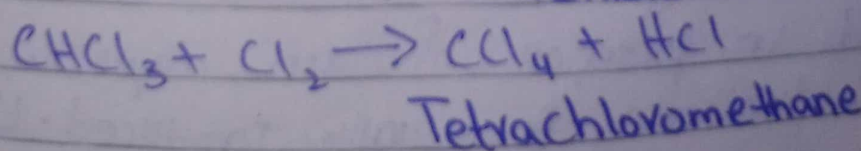 CHCl₃ + Cl₂ → CCl₄ + HCl
Tetrachloromethane